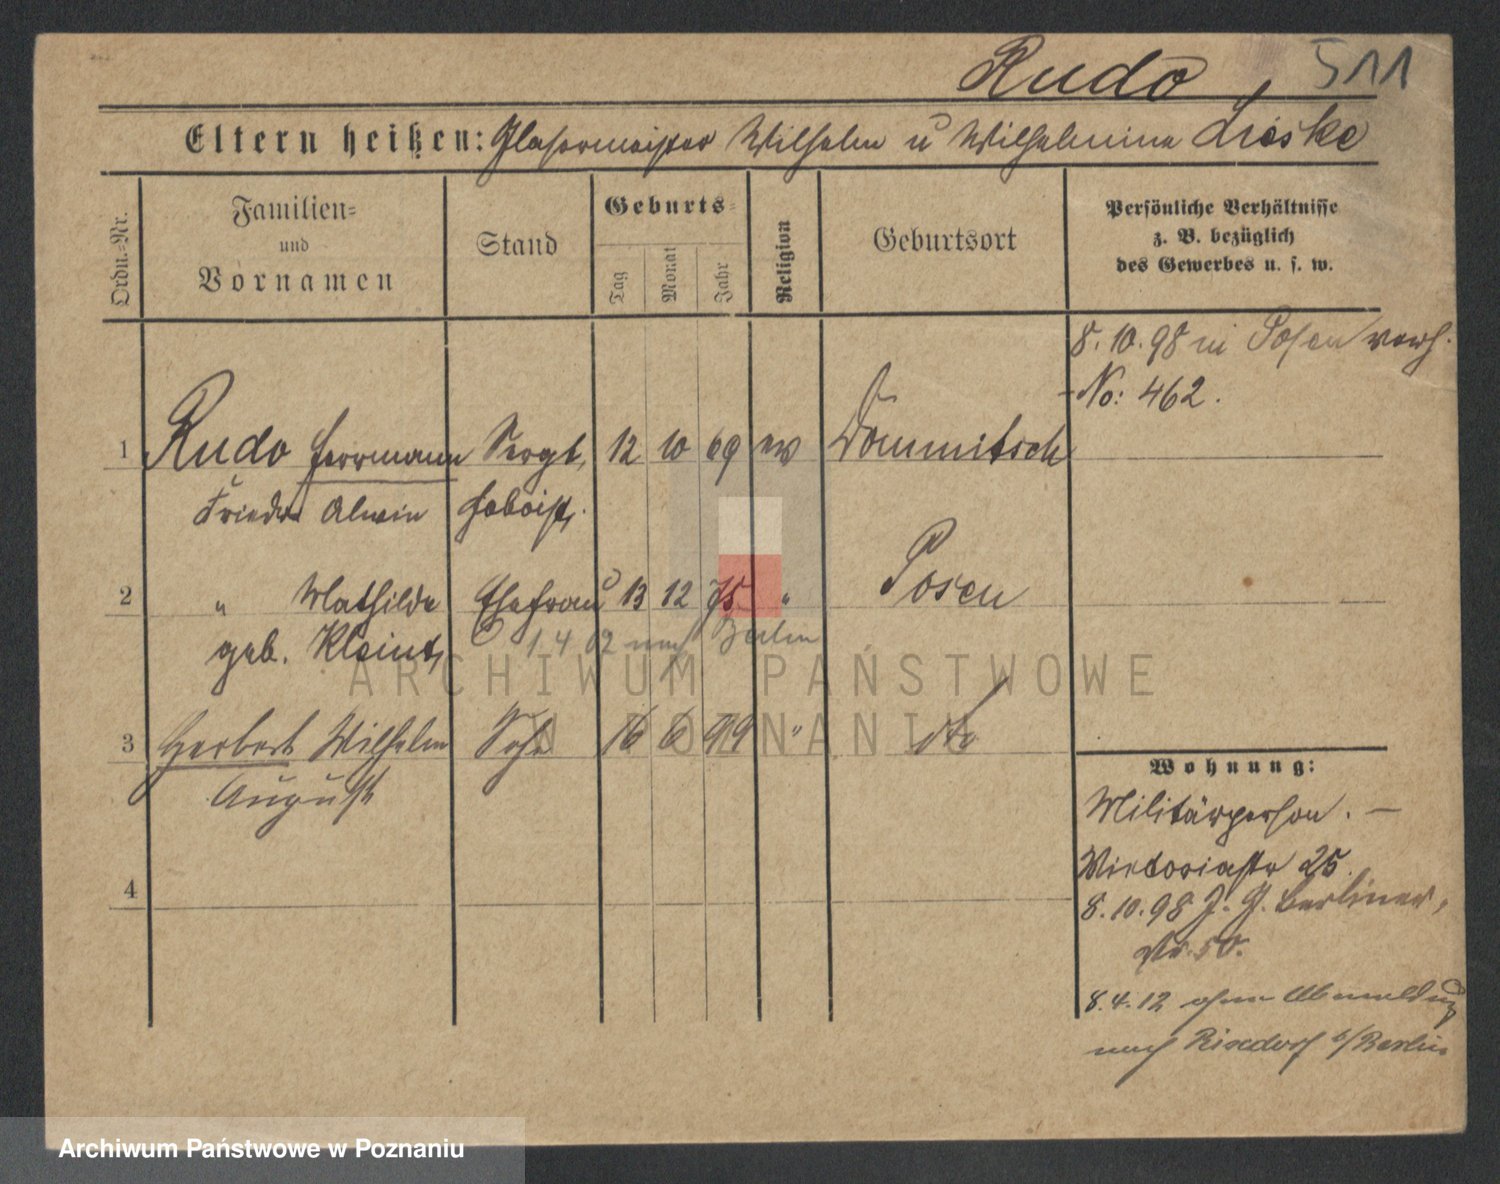 Rudo, 511
Eltern heißen: Glasermeister Wilhelm u Wilhelmine Lieske
Ordn.-Nr.
Familien-
und
Vornamen
Stand
Geburts-
Tag
Monat
Jahr
Religion
Geburtsort
Persönliche Verhältnisse
z. B. bezüglich
des Gewerbes u. s. w.
8.10.98 in Posen verh.
No: 462.
1 Rudo Herrmann Sergt, 12 10 69 ev Dommitsch
Friedr. Alwin Hoboist.
2 " Mathilde Ehefrau 13 12 75 " Posen
geb. Kleint, 1 4 02 nach Berlin
3 Herbert Wilhelm Sohn 16 6 99 " dto
August
4
Wohnung:
Militärperson. —
Victoriastr 25.
8.10.98 J. G. Berliner,
str. 50.
8.4.12 ohne Abmeldung
nach Rixdorf b/Berlin
ARCHIWUM PAŃSTWOWE
W POZNANIU
Archiwum Państwowe w Poznaniu